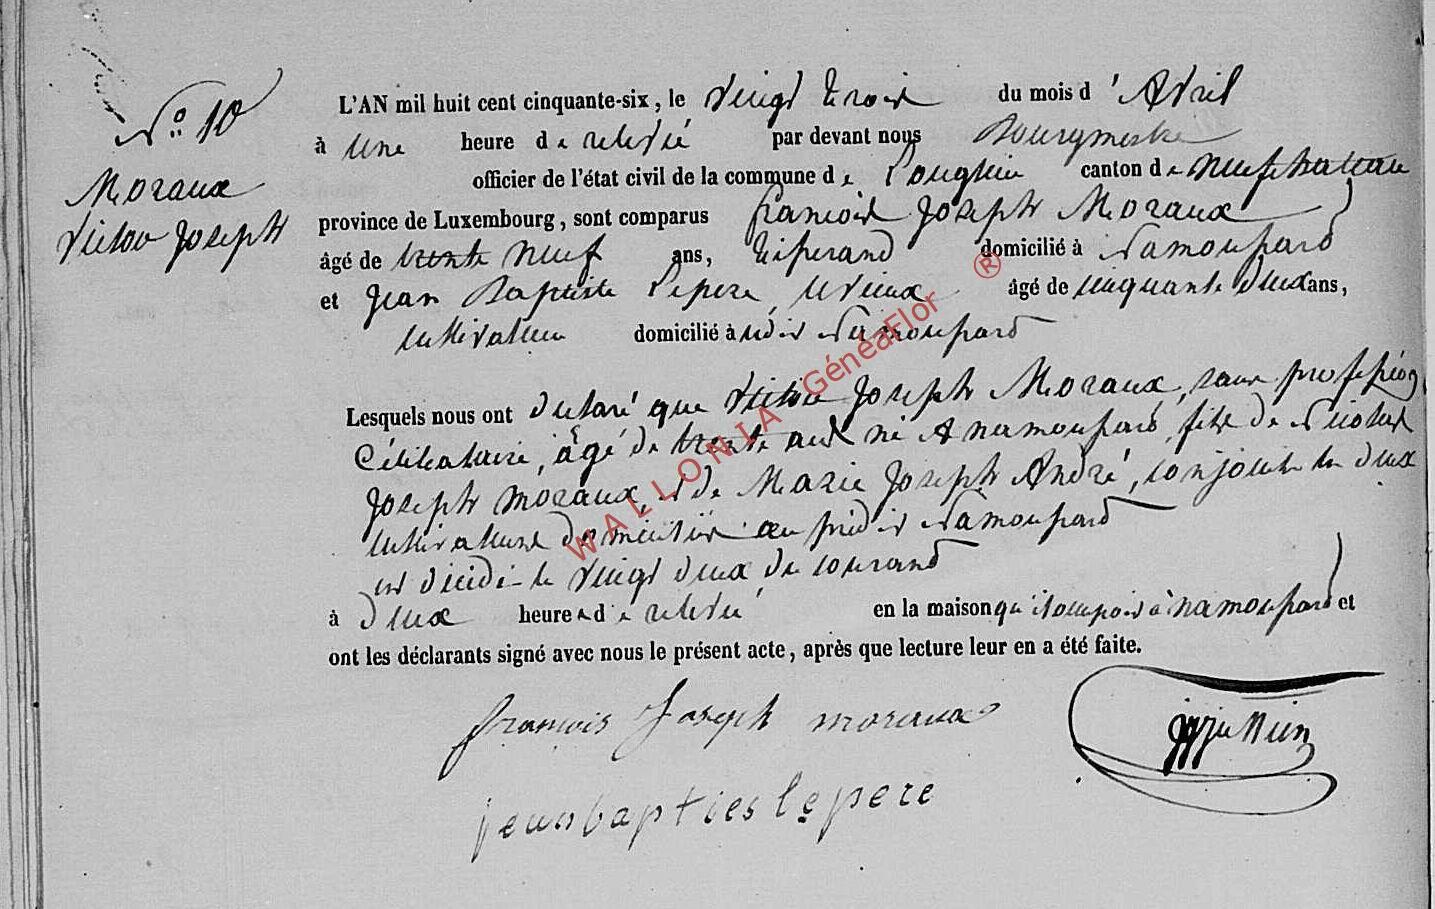 N° 10
Moraux
Victor Joseph
L'AN mil huit cent cinquante-six, le vingt trois du mois d'Avril
à une heure de relevé par devant nous Bourgmestre
officier de l'état civil de la commune de Longlier canton de neufchateau
province de Luxembourg, sont comparus françois Joseph Moraux
âgé de trente neuf ans, tisserand domicilié à Namoussard
et Jean Baptiste Lepere, âgé de cinquante deux ans,
cultivateur domicilié à Namoussard
Lesquels nous ont declaré que Victor Joseph Moraux, sans profession
Célibataire, âgé de trente ans né A namoussard, fils de Nicolas
Joseph moraux, et de Marie Joseph André, conjoints en
cultivateurs domiciliés au predit Namoussard
est décédé le vingt deux du courant
à deux heures de relevé en la maison qu'il occupoit à namoussard et
ont les déclarants signé avec nous le présent acte, après que lecture leur en a été faite.
françois Joseph moraux
jean bapties lepere
WALLONIA GénéaFlor ®